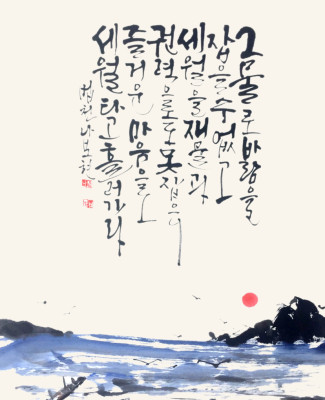 그물로 바람을
잡을 수 없고
세월을 재물과
권력으로도 못 잡으니
즐거운 마음으로
세월 타고 흘러가라